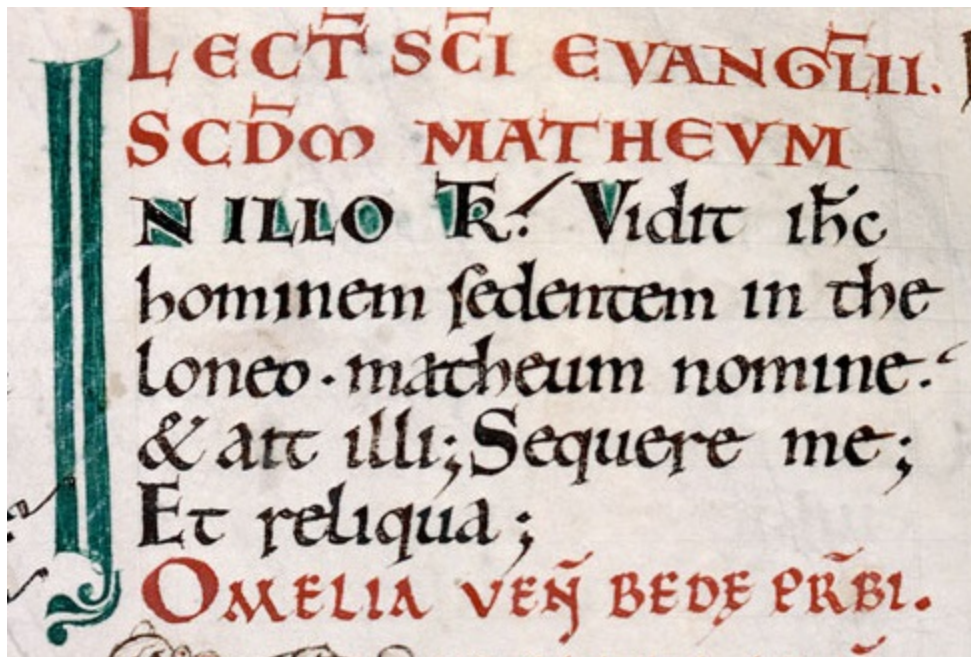 LECT̅ SC̅I EVANGL̅II.
SCD̅M MATHEVM
IN ILLO T̅R: Vidit ih̅c
hominem ſedentem in the
loneo · matheum nomine.
& ait illi; Sequere me;
Et reliqua;
OMELIA VEN̅ BEDE PR̅BI.